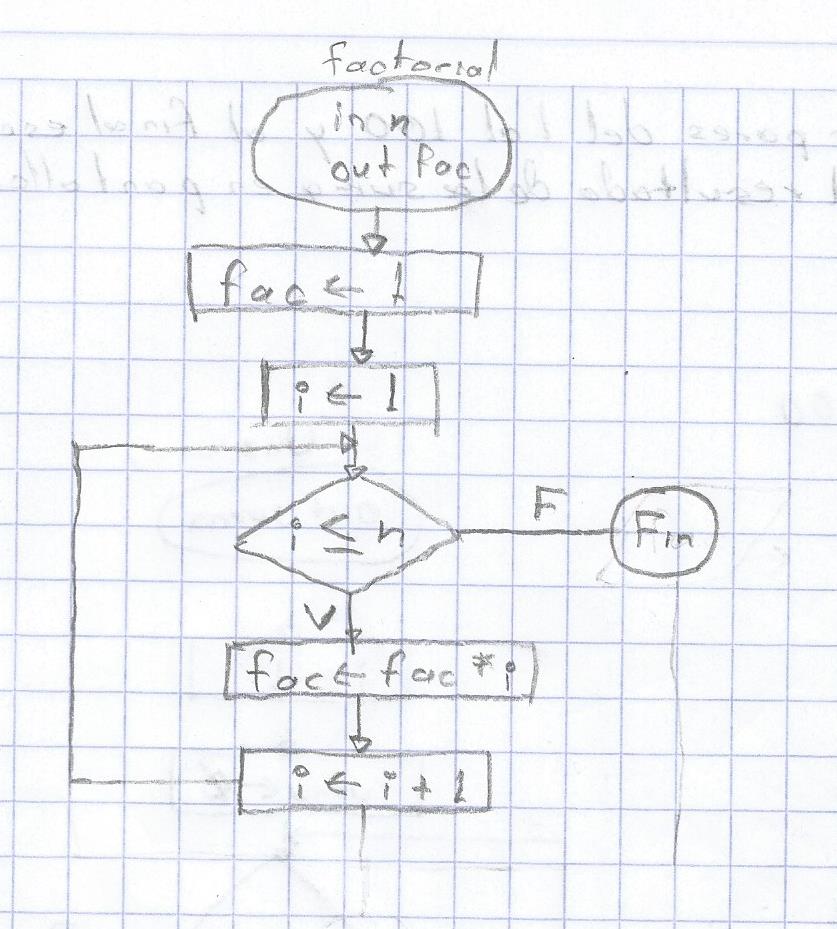 factorial
in n
out fac
fac ← 1
i ← 1
i ≤ n
F
Fin
V
fac ← fac * i
i ← i + 1